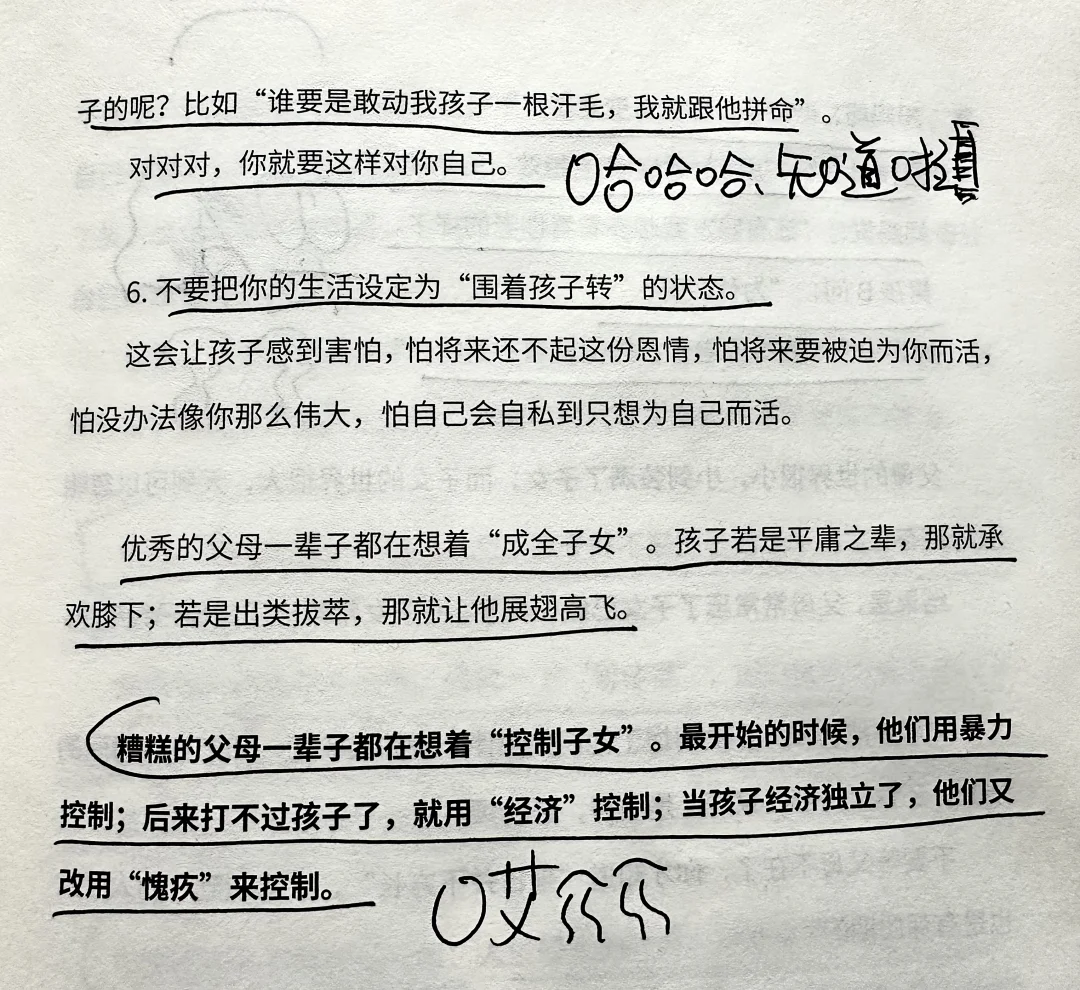 子的呢？比如“谁要是敢动我孩子一根汗毛，我就跟他拼命”。
对对对，你就要这样对你自己。
哈哈哈、知道啦
6. 不要把你的生活设定为“围着孩子转”的状态。
这会让孩子感到害怕，怕将来还不起这份恩情，怕将来要被迫为你而活，
怕没办法像你那么伟大，怕自己会自私到只想为自己而活。
优秀的父母一辈子都在想着“成全子女”。孩子若是平庸之辈，那就承
欢膝下；若是出类拔萃，那就让他展翅高飞。
糟糕的父母一辈子都在想着“控制子女”。最开始的时候，他们用暴力
控制；后来打不过孩子了，就用“经济”控制；当孩子经济独立了，他们又
改用“愧疚”来控制。
哎